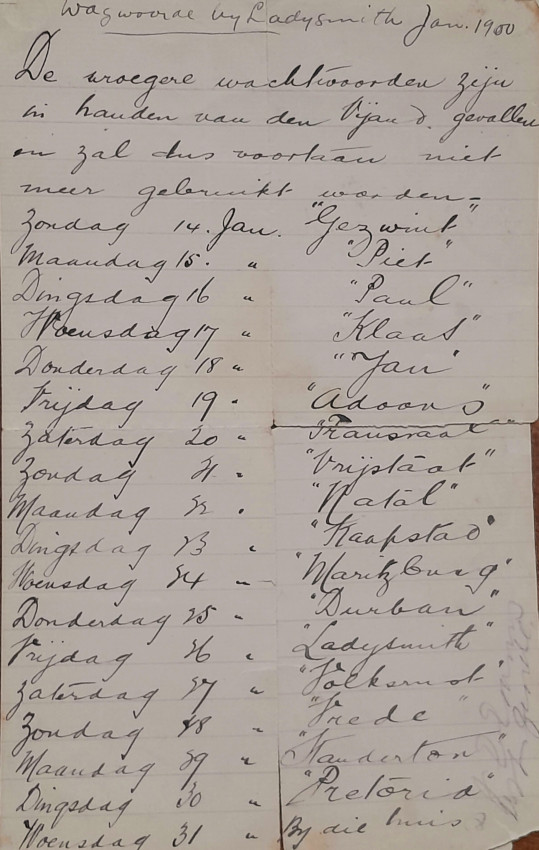 Wagwoorde by Ladysmith Jan. 1900
De vroegere wachtwoorden zijn
in handen van den Vijand gevallen
en zal dus voortaan niet
meer gebruikt worden =
Zondag 14. Jan. "Gezwint"
Maandag 15. " "Piet"
Dingsdag 16 " "Paul"
Woensdag 17 " "Klaas"
Donderdag 18 " "Jan"
Vrijdag 19 " "Adoons"
Zaterdag 20 " "Transvaal"
Zondag 21 " "Vrijstaat"
Maandag 22 " "Natal"
Dingsdag 23 " "Kaapstad"
Woensdag 24 " "Maritzburg"
Donderdag 25 " "Durban"
Vrijdag 26 " "Ladysmith"
Zaterdag 27 " "Volksrust"
Zondag 28 " "Vrede"
Maandag 29 " Standerton"
Dingsdag 30 " "Pretoria"
Woensdag 31 " By die huis